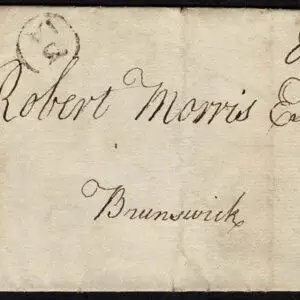 Robert Morris Es
Brunswick